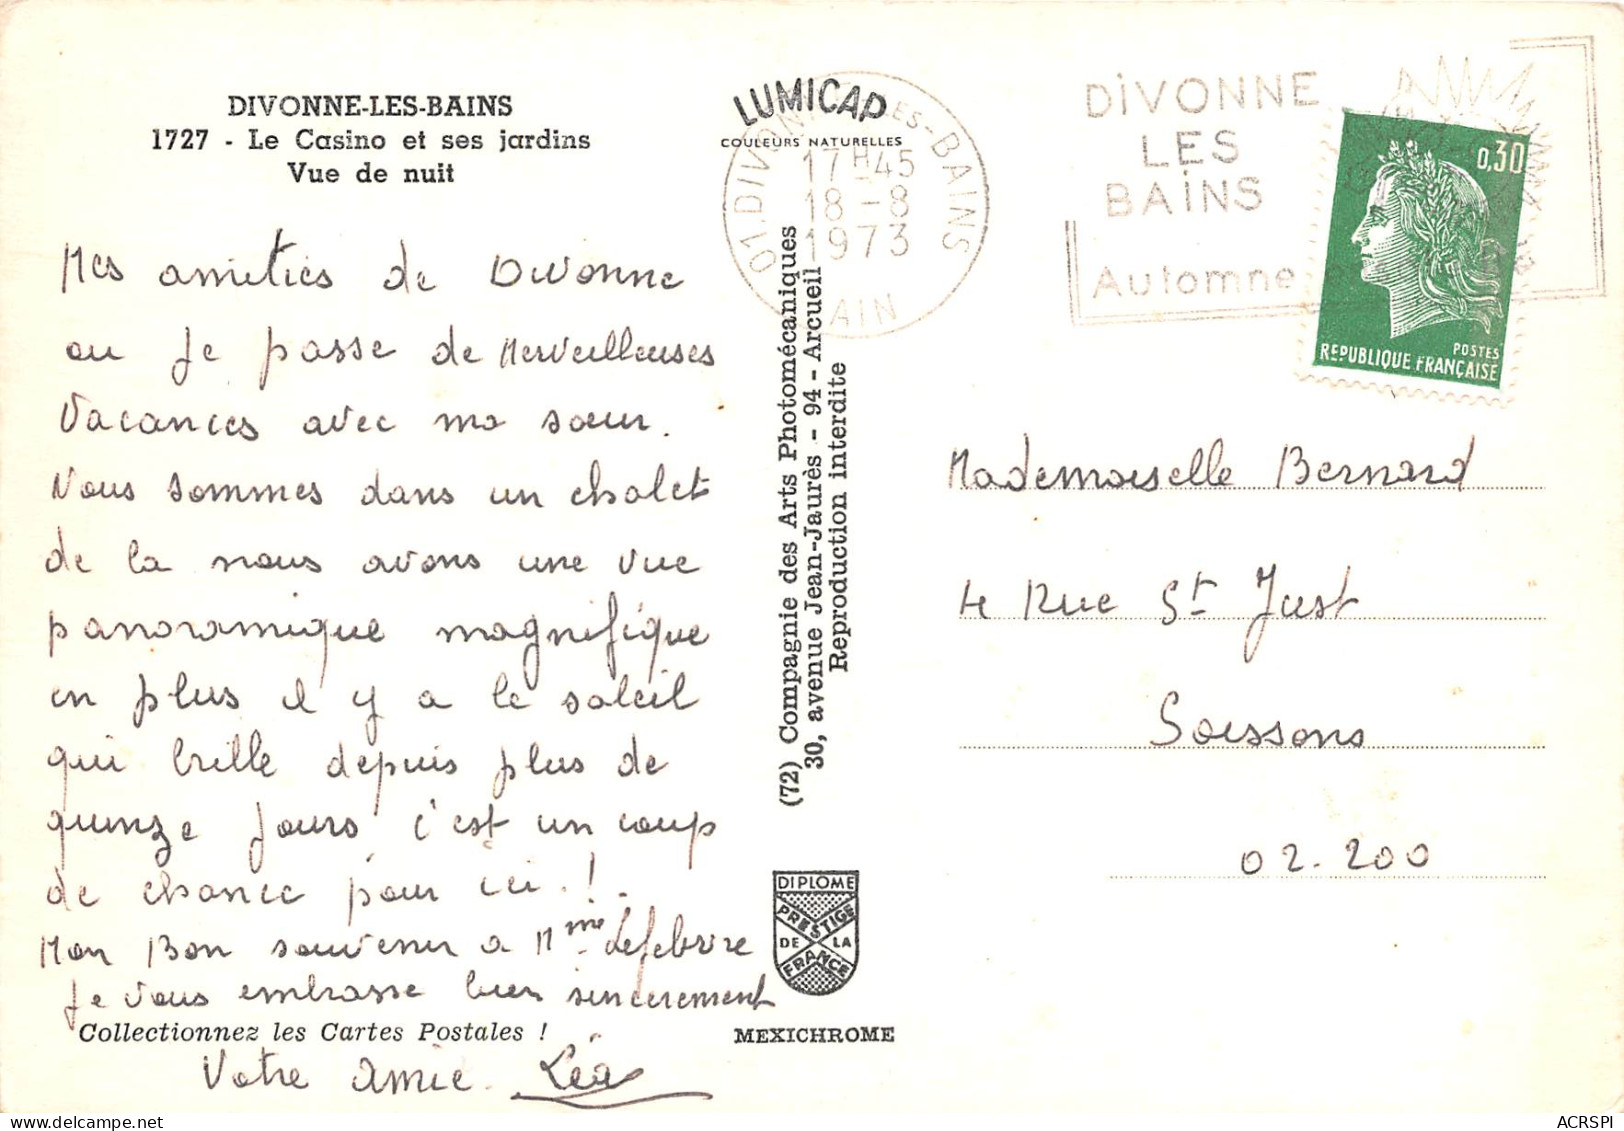 DIVONNE-LES-BAINS
1727 - Le Casino et ses jardins
Vue de nuit
Mes amitiés de Divonne
ou je passe de Merveilleuses
Vacances avec ma sœur.
Nous sommes dans un chalet
de la nous avons une vue
panoramique magnifique
en plus il y a le soleil
qui brille depuis plus de
quinze jours c'est un coup
de chance pour ici.!
Mon Bon souvenir a Mme Lefebvre
Je vous embrasse bien sincerement
Collectionnez les Cartes Postales !
Votre amie. Léa
LUMICAP
COULEURS NATURELLES
01 DIVONNE-LES-BAINS
17H45
18-8
1973
AIN
(72) Compagnie des Arts Photomécaniques
30, avenue Jean-Jaurès - 94 - Arcueil
Reproduction interdite
DIPLOME
PRESTIGE
DE LA
FRANCE
MEXICHROME
DIVONNE
LES
BAINS
Automne
0,30
POSTES
REPUBLIQUE FRANÇAISE
Mademoiselle Bernard
4 Rue St Just
Soissons
02.200
ACRSPI